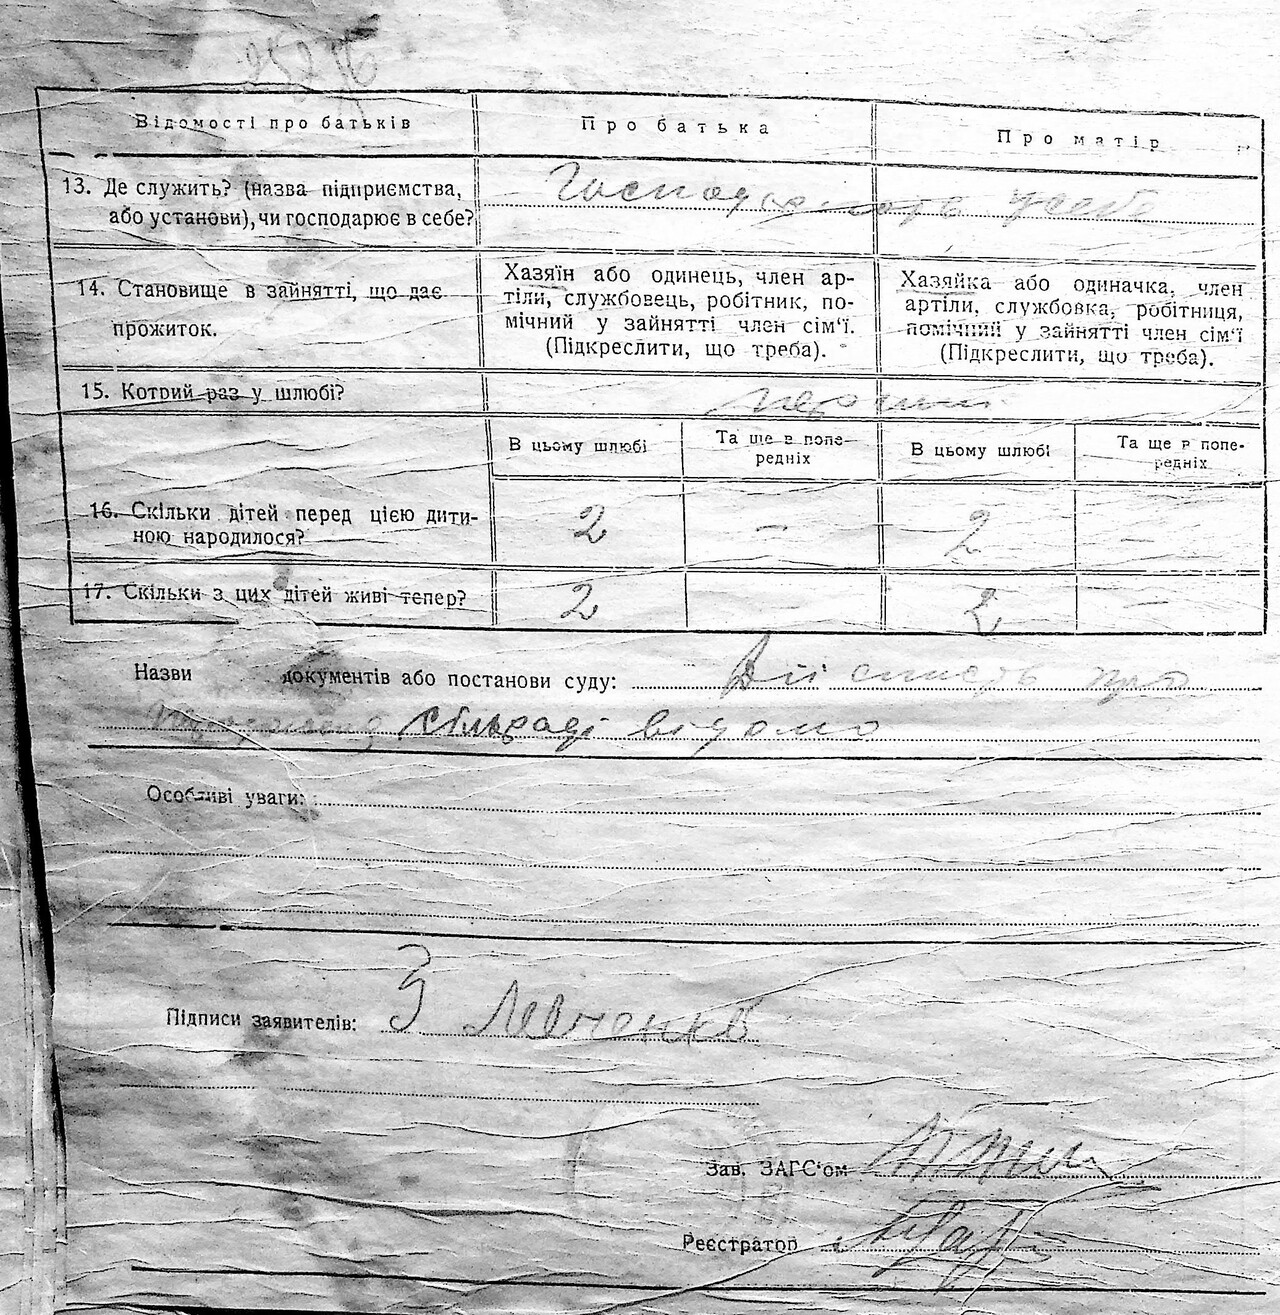 Відомості про батьків
Про батька
Про матір
13. Де служить? (назва підприємства,
або установи), чи господарює в себе?
Господарюють у себе
14. Становище в зайнятті, що дає
прожиток.
Хазяїн або одинець, член ар-
тілі, службовець, робітник, по-
мічний у зайнятті член сім'ї.
(Підкреслити, що треба).
Хазяйка або одиначка, член
артілі, службовка, робітниця,
помічний у зайнятті член сім'ї
(Підкреслити, що треба).
15. Котрий раз у шлюбі?
В цьому шлюбі
Та ще в попе-
редніх
В цьому шлюбі
Та ще в попе-
редніх
16. Скільки дітей перед цією дити-
ною народилося?
2 - 2 -
17. Скільки з цих дітей живі тепер?
2 2 -
Назви документів або постанови суду: Дійсність про
сільраді відомо
Особливі уваги:
Підписи заявителів: З Левченко
Зав. ЗАГС'ом
Реєстратор